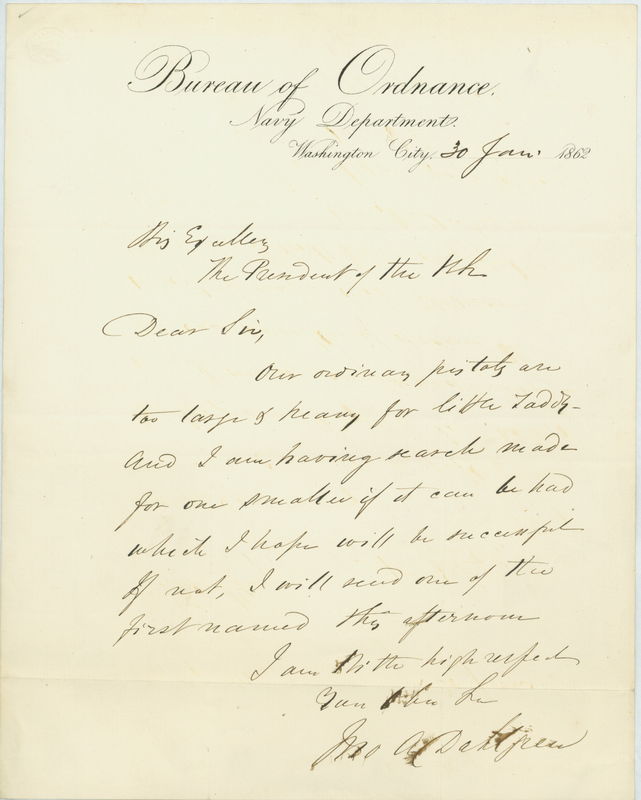 Bureau of Ordnance.
Navy Department.
Washington City, 30 Jan. 1862
His Excellency
The President of the US
Dear Sir,
Our ordinary pistols are
too large & heavy for little Taddy -
and I am having search made
for one smaller if it can be had
which I hope will be successful
If not, I will send one of the
first named this afternoon
I am With high respect
Your Obe Se
Jno A Dahlgren